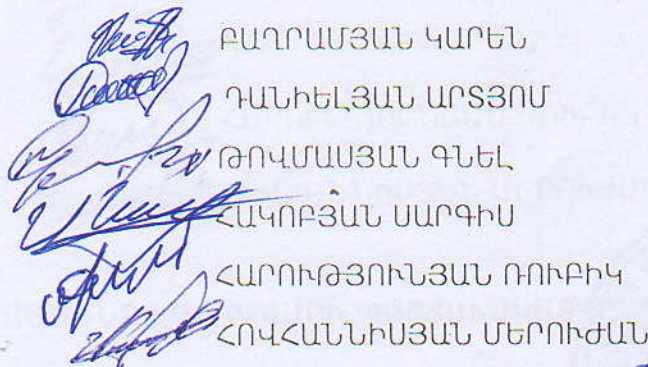 ԲԱՂՐԱՄՅԱՆ ԿԱՐԵՆ
ԴԱՆԻԵԼՅԱՆ ԱՐՏՅՈՄ
ԹՈՎՄԱՍՅԱՆ ԳՆԵԼ
ՀԱԿՈԲՅԱՆ ՍԱՐԳԻՍ
ՀԱՐՈՒԹՅՈՒՆՅԱՆ ՌՈՒԲԻԿ
ՀՈՎՀԱՆՆԻՍՅԱՆ ՄԵՐՈՒԺԱՆ